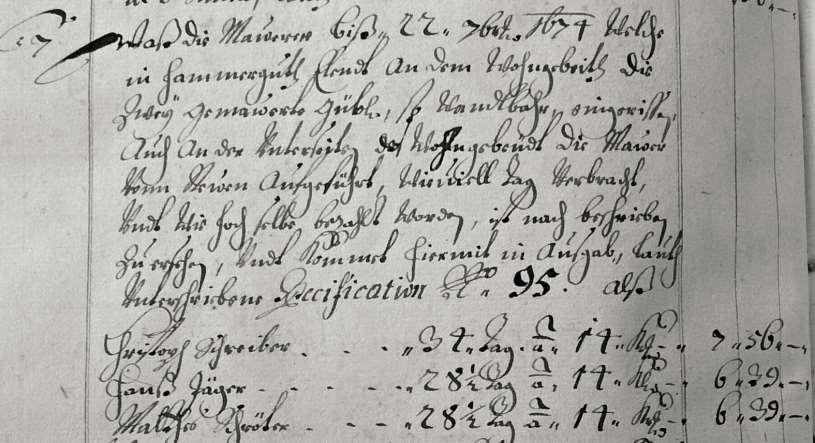 Waß die Maurer biß 22. 7br. 1674 Welche
in Hammerguth Elendt An dem Wohngebeith die
Zwey gemauerte Gübl, so Wandlbahr, eingerissen,
Auch An der Unterseiten des Wohngebeudt die Mauer
Vonn Neuen Aufgeführt, Wieviell tag Verbracht,
Undt Wie hoch selbe bezahlt Worden, ist nach beschrieben
Zu ersehen, Undt Kommet hiermit in Ausgab, lauth
Unterschriebene Specification No. 95. Alß
Christoph Schreiber . . . 34. tag. a. 14. Kr. 7. 56.
Hanß Jäger . . . 28½ tag a. 14. Kr. 6. 39.
Matthes Schröter . . . 28½ tag a. 14. Kr. 6. 39.